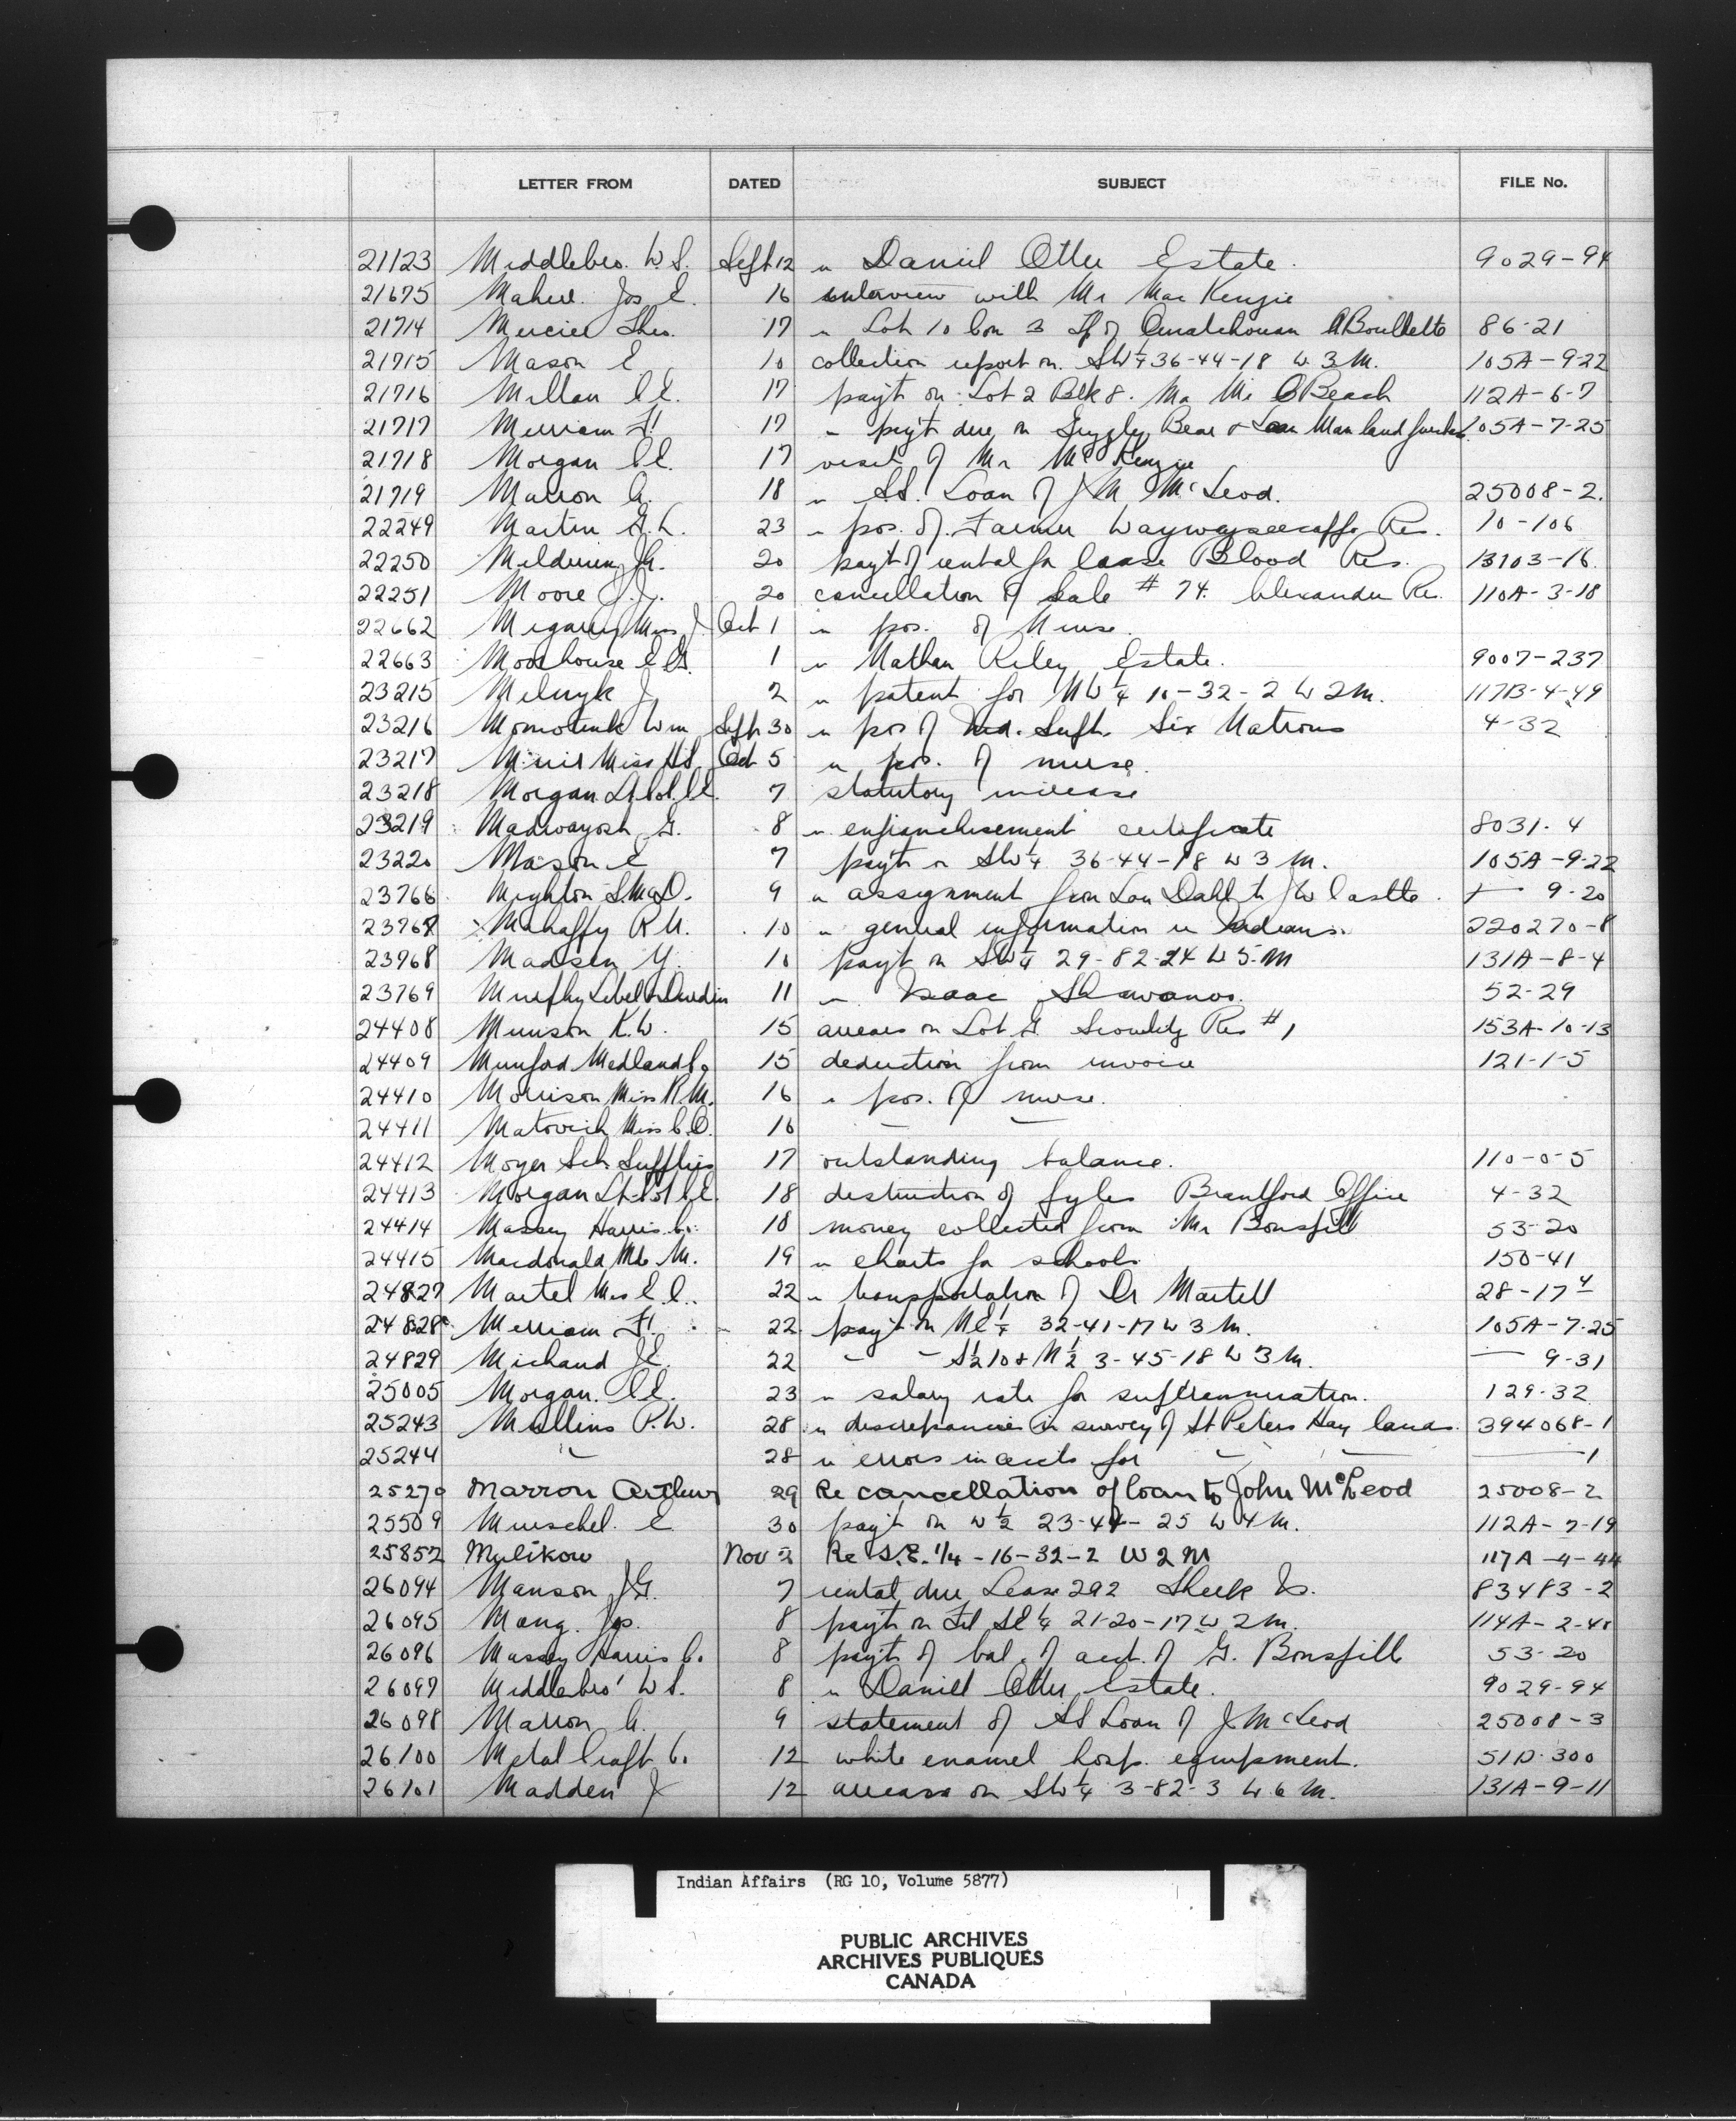 LETTER FROM DATED SUBJECT FILE No.
21123 Middlebro. W.S. Sept 12 re Daniel Otter Estate. 9029-94
21675 Jos. E. 16 interview with Mr MacKenzie
21714 Mercier Theo. 17 re Lot 10 Con 3 Tp of Ouiatchouan 86-21
21715 Mason E. 10 collection report on SW¼ 36-44-18 W 3 M. 105A-9-22
21716 Millan C.E. 17 payt on Lot 2 Blk 8. Ma Me O Beach 112A-6-7
21717 Merriam F. 17 re payt due on Grizzly Bear & Lean Man land 105A-7-25
21718 Morgan C.E. 17 visit of Mr McKenzie
21719 Marron A. 18 re SS. Loan of J M McLeod. 25008-2.
22249 Martin G.L. 23 re pos. of Farmer Waywayseecappo Res. 10-106
22250 Meldrum 20 payt of rental for lease Blood Res. 13103-16
22251 Moore J.J. 20 cancellation of Sale # 74. Alexander Re. 110A-3-18
22662 Megarry Miss J. Oct 1 re pos. of Nurse.
22663 Moorhouse E.G. 1 re Nathan Riley Estate. 9007-237
23215 Melnyk J. 2 re patent for NW¼ 16-32-2 W 2 M. 117B-4-49
23216 Wm Sept 30 re pos of Med. Supt. Six Nations 4-32
23217 Miss Oct 5 re pos. of nurse.
23218 Morgan Lt Col. C.E. 7 statutory increase
23219 Madwayosh G. 8 re enfranchisement certificate 8031-4
23220 Mason E 7 payt on SW¼ 36-44-18 W 3 M. 105A-9-22
23766 Mighton S. McD. 9 re assignment from Lou Dahl to J W Castle. 9-20
23767 Mahaffy R.U. 10 re general information re Indians. 220270-8
23768 Madsen Y. 10 payt on SW¼ 29-82-24 W 5-M 131A-8-4
23769 Murphy Lebel & Durdin 11 re Isaac Shawanoo. 52-29
24408 Munson K.W. 15 arrears on Lot G Res #1 153A-10-13
24409 Mumford Medland Co 15 deduction from invoice 121-1-5
24410 Morrison Miss R.M. 16 re pos. of nurse.
24411 Matovich Miss C.O. 16 " "
24412 Moyer Sch. Supplies 17 outstanding balance. 110-0-5
24413 Morgan Lt-Col C.E. 18 destruction of fyles Brantford Office 4-32
24414 Massey Harris Co. 18 money collected from Mr Bonspill 53-20
24415 Macdonald M. 19 re charts for schools 150-41
24827 Martel Mrs E.C. 22 re transportation of Dr Martell 28-17-4
24828 Merriam F. 22 payt on NE¼ 32-41-17 W 3 M. 105A-7-25
24829 Michaud J.E. 22 " " S½ 10 & N½ 3-45-18 W 3 M. — 9-31
25005 Morgan. C.E. 23 re salary rate for superannuation. 129-32
25243 Mullins P.W. 28 re discrepancies in survey of St Peters Hay lands. 394068-1
25244 " 28 re errors in accts for " " — 1
25270 Marron Arthur 29 Re cancellation of loan to John McLeod 25008-2
25509 Murschel. E 30 payt on W½ 23-44-25 W 4 M. 112A-7-19
25852 Mulikow Nov 2 Re S.E. 1/4 -16-32-2 W 2 M 117A-4-44
26094 Manson J.G. 7 rental due Lease 292 Sheek Is. 83483-2
26095 Mang. Jos. 8 payt on Frl SE¼ 21-20-17 W 2 M. 114A-2-48
26096 Massey Harris Co. 8 payt of bal. of acct. of G. Bonspill 53-20
26097 Middlebro' W S. 8 re Daniel Otter Estate. 9029-94
26098 Marron A. 9 statement of SS Loan of J McLeod 25008-3
26100 Metal Craft Co. 12 white enamel hosp. equipment. 51D-300
26101 Madden J 12 arrears on SW¼ 3-82-3 W 6 M. 131A-9-11
Indian Affairs (RG 10, Volume 5877)
PUBLIC ARCHIVES
ARCHIVES PUBLIQUES
CANADA